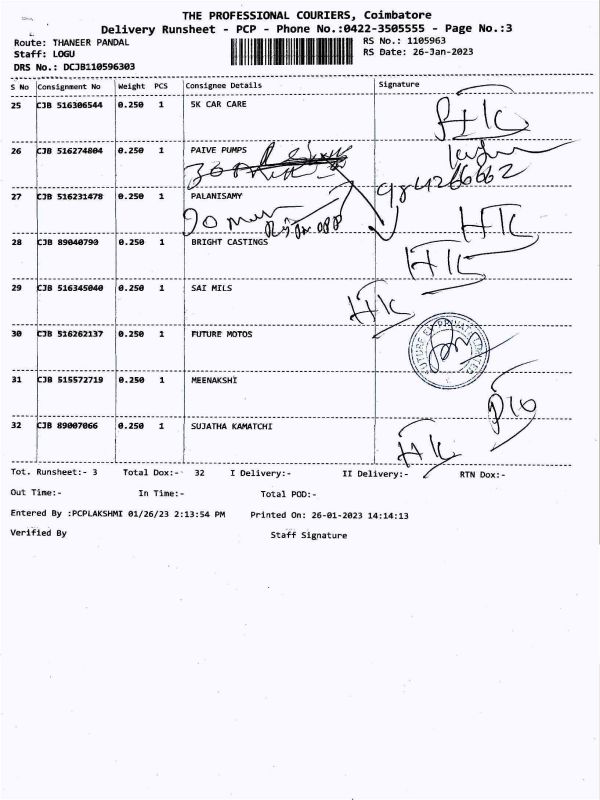 THE PROFESSIONAL COURIERS, Coimbatore
Delivery Runsheet - PCP - Phone No.:0422-3505555 - Page No.:3
Route: THANEER PANDAL RS No.: 1105963
Staff: LOGU RS Date: 26-Jan-2023
DRS No.: DCJB110596303
S No Consignment No Weight PCS Consignee Details Signature
25 CJB 516306544 0.250 1 SK CAR CARE
26 CJB 516274804 0.250 1 PAIVE PUMPS
9842266662
27 CJB 516231478 0.250 1 PALANISAMY
28 CJB 89040790 0.250 1 BRIGHT CASTINGS
29 CJB 516345040 0.250 1 SAI MILS
30 CJB 516262137 0.250 1 FUTURE MOTOS
31 CJB 515572719 0.250 1 MEENAKSHI
32 CJB 89007066 0.250 1 SUJATHA KAMATCHI
Tot. Runsheet:- 3 Total Dox:- 32 I Delivery:- II Delivery:- RTN Dox:-
Out Time:- In Time:- Total POD:-
Entered By :PCPLAKSHMI 01/26/23 2:13:54 PM Printed On: 26-01-2023 14:14:13
Verified By Staff Signature